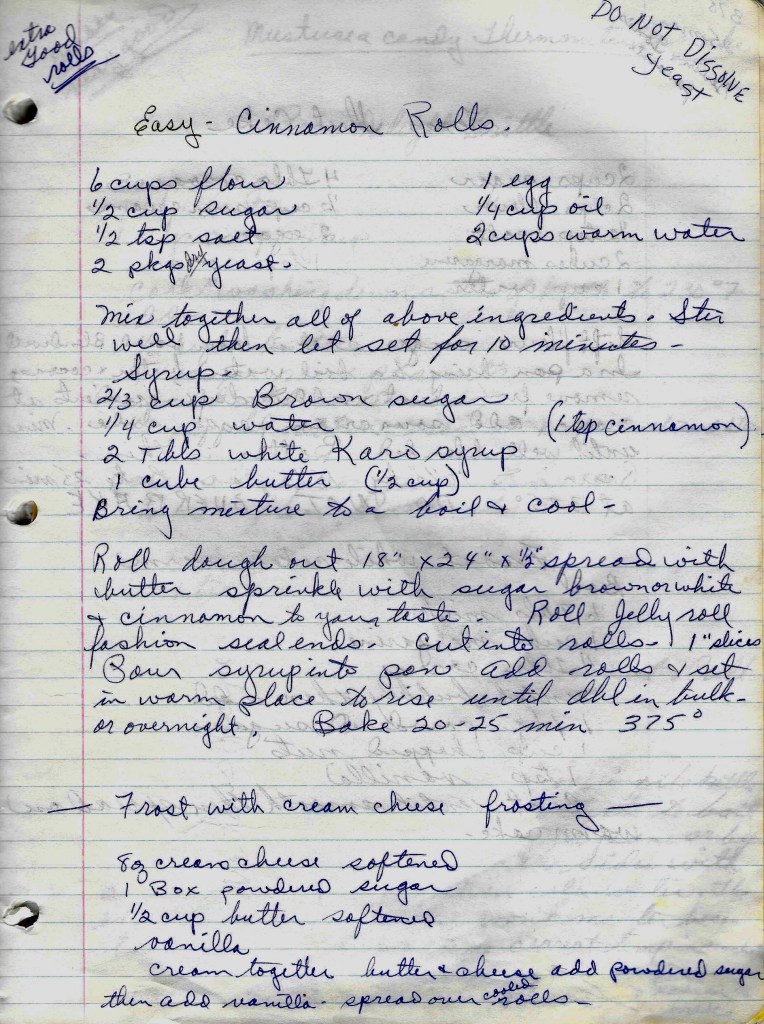 extra
good
rolls
DO NOT DISSOLVE
yeast
Easy - Cinnamon Rolls.
6 cups flour 1 egg
1/2 cup sugar 1/4 cup oil
1/2 tsp salt 2 cups warm water
2 pkgs dry yeast.
Mix together all of above ingredients. Stir
well then let set for 10 minutes -
Syrup -
2/3 cup Brown sugar
1/4 cup water (1 tsp cinnamon)
2 Tbls white Karo syrup
1 cube butter (1/2 cup)
Bring mixture to a boil & cool -
Roll dough out 18" x 24" x 1/2" spread with
butter sprinkle with sugar brown or white
& cinnamon to your taste. Roll Jelly roll
fashion seal ends. Cut into rolls - 1" slices
Pour syrup into pan add rolls & set
in warm place to rise until dbl in bulk -
or overnight. Bake 20-25 min 375°
— Frost with cream cheese frosting —
8 oz cream cheese softened
1 Box powdered sugar
1/2 cup butter softened
vanilla
cream together butter & cheese add powdered sugar
then add vanilla - spread over cooled rolls -